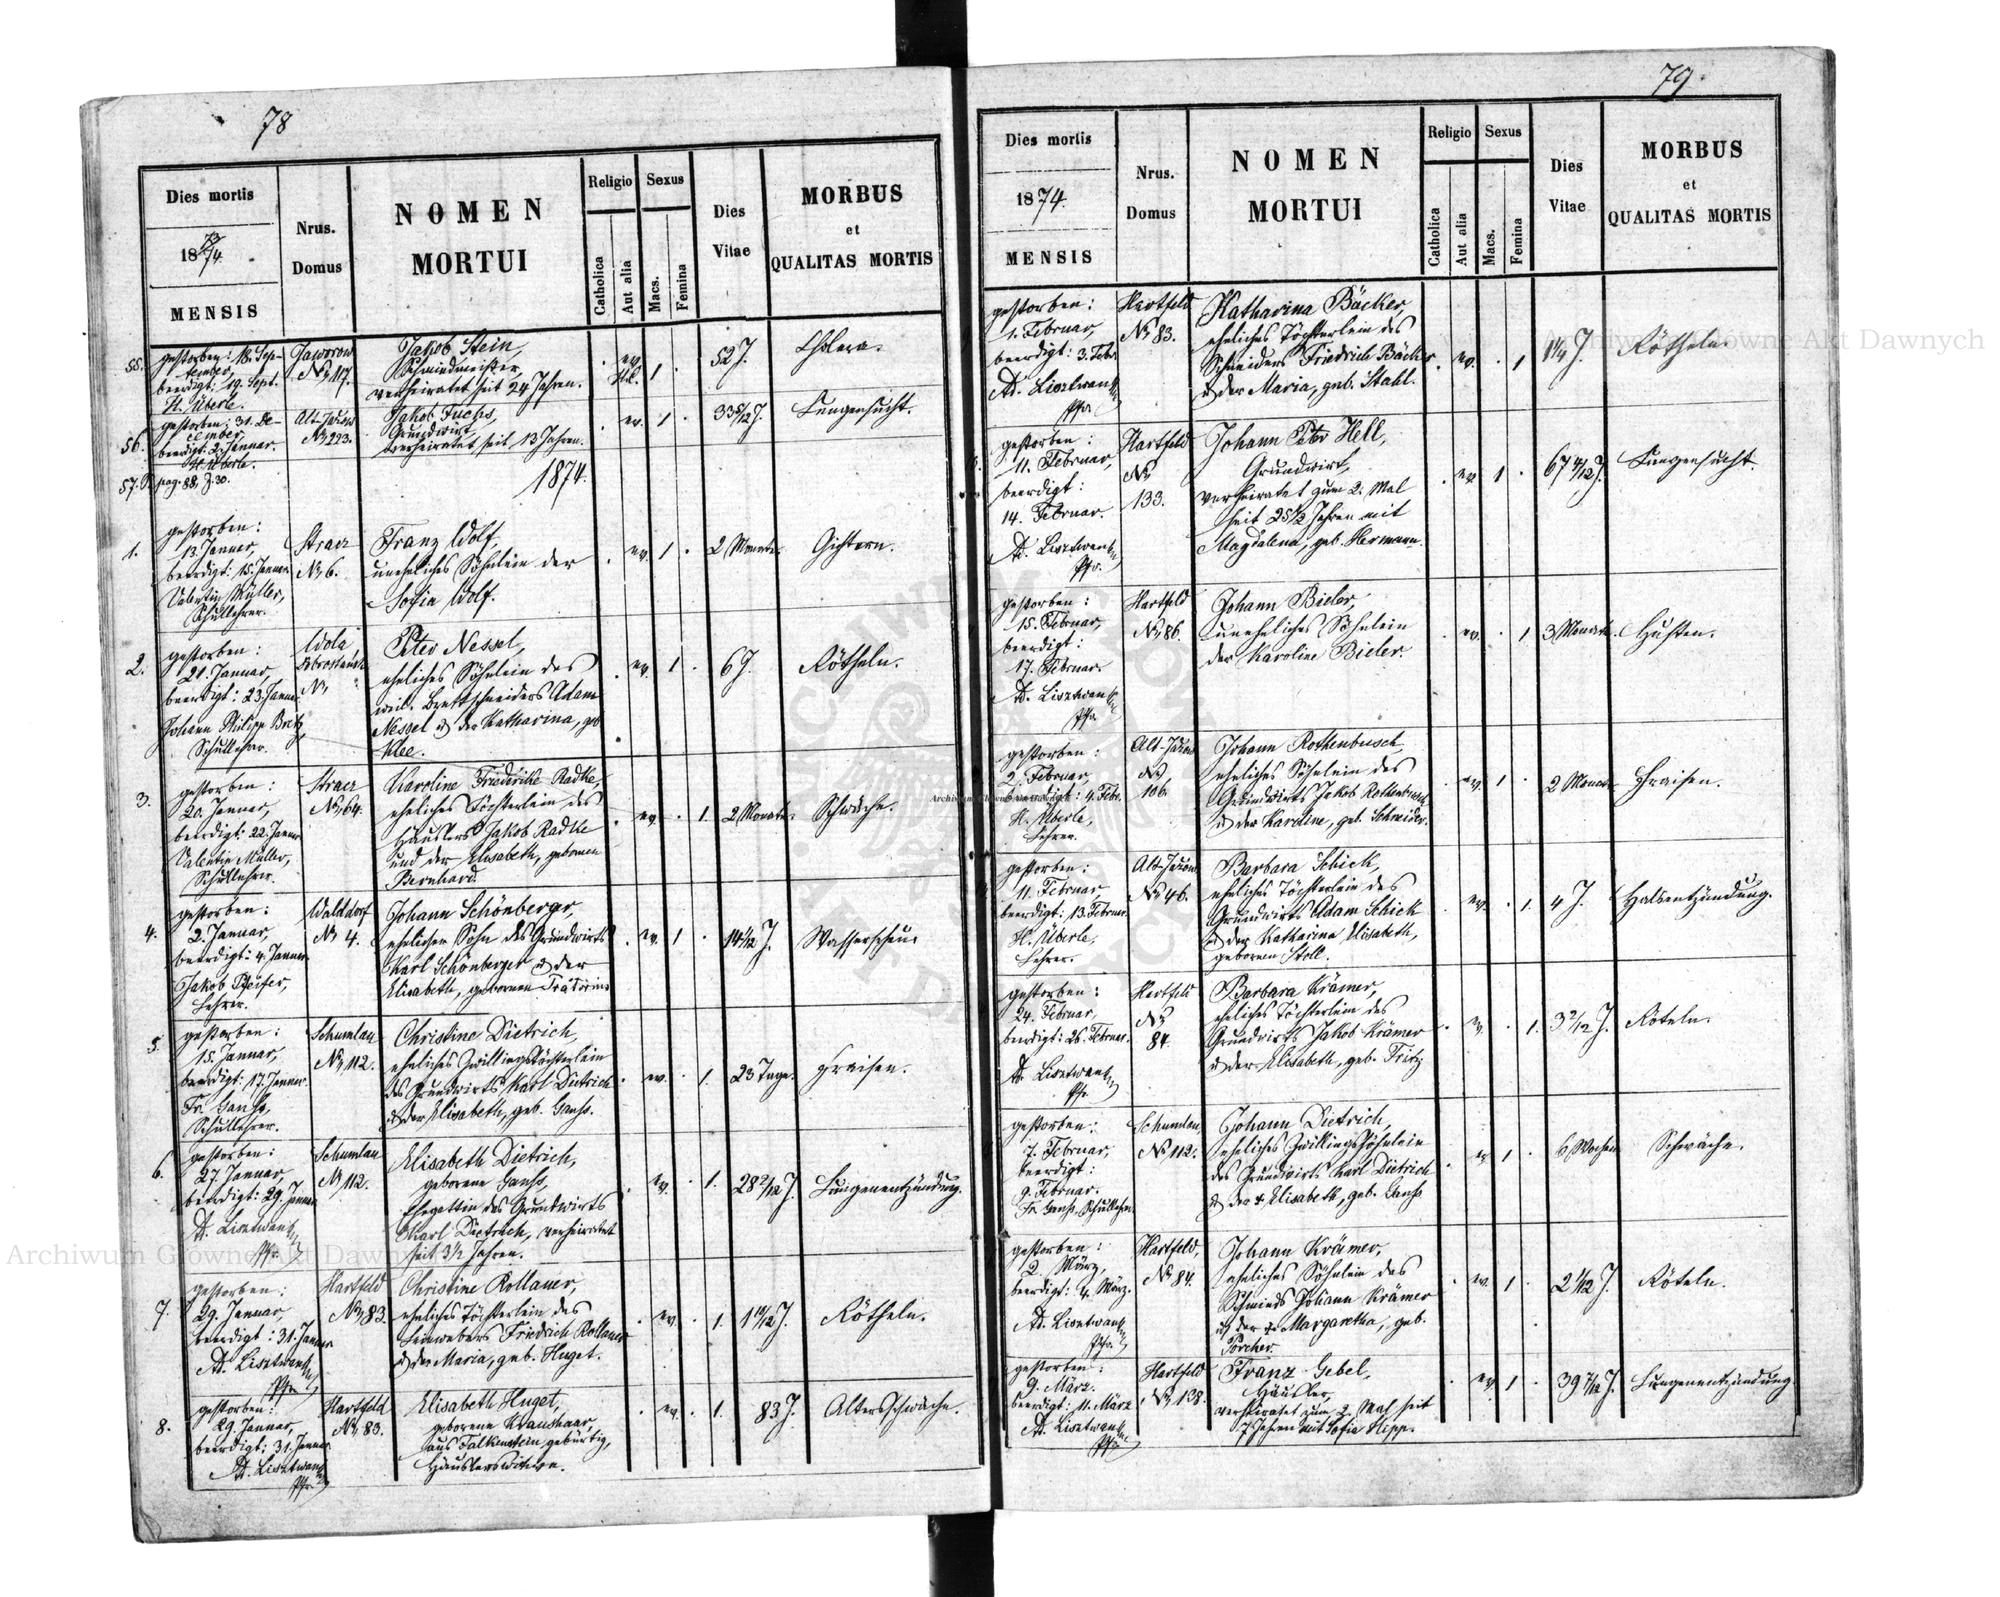 78
Dies mortis
1873/74.
MENSIS
Nrus.
Domus
NOMEN
MORTUI
Religio
Catholica
Aut alia
Sexus
Macs.
Femina
Dies
Vitae
MORBUS
et
QUALITAS MORTIS
55.
gestorben: 18. Sep-
tember,
beerdigt: 19. Sept.
H. Überle.
Jaworow
No 117.
Jakob Stein,
Schmiedmeister,
verheiratet seit 24 Jahren.
ev.
1
52 J.
Cholera.
56.
gestorben: 31. De-
cember,
beerdigt: 2. Januar.
H. Überle.
Alt-Jazow
No 223.
Jakob Fuchs,
Grundwirt,
verheiratet seit 13 Jahren.
ev.
1
33 5/12 J.
Lungensucht.
57. S. pag. 88, Z. 30.
1874.
1.
gestorben:
13. Januar,
beerdigt: 15. Januar.
Valentin Müller,
Schullehrer.
Stracz
No 6.
Franz Wolf,
uneheliches Söhnlein der
Sofia Wolf.
ev.
1
2 Monate.
Gichtern.
2.
gestorben:
21. Januar,
beerdigt: 23. Januar
Johann Philipp Bretz,
Schullehrer.
Wola
No
Peter Nessel,
eheliches Söhnlein des
weil. Brettschneiders Adam
Nessel u. der Katharina, geb.
Klee.
ev.
1
6 J.
Rötheln.
3.
gestorben:
20. Januar,
beerdigt: 22. Januar
Valentin Müller,
Schullehrer.
Stracz
No 64.
Karoline Friederike Radke,
eheliches Töchterlein des
Häuslers Jakob Radke
und der Elisabeth, gebornen
Bernhard.
ev.
1.
2 Monate.
Schwäche.
4.
gestorben:
2. Januar,
beerdigt: 4. Januar.
Jakob Pfeifer,
Lehrer.
Walddorf
No 4.
Johann Schönberger,
ehelicher Sohn des Grundwirts
Karl Schönberger u. der
Elisabeth, gebornen
ev.
1
14 1/12 J.
Wasserscheu.
5.
gestorben:
15. Januar,
beerdigt: 17. Januar.
Fr. Ganss,
Schullehrer.
Schumlau
No 112.
Christine Dietrich,
eheliches Zwillingstöchterlein
des Grundwirts Karl Dietrich
u. der Elisabeth, geb. Ganss.
ev.
1.
23 Tage.
Fraisen.
6.
gestorben:
27. Januar,
beerdigt: 29. Januar
A. Lisztwan
Pfr.
Schumlau
No 112.
Elisabeth Dietrich,
geborene Ganss,
Ehegattin des Grundwirts
Karl Dietrich, verheiratet
seit 3 1/2 Jahren.
ev.
1.
28 2/12 J.
Lungenentzündung.
7.
gestorben:
29. Januar,
beerdigt: 31. Januar
A. Lisztwan
Pfr.
Hartfeld
No 83.
Christine Rollauer,
eheliches Töchterlein des
Leinwebers Friedrich Rollauer
u. der Maria, geb. Huget.
ev.
1.
1 10/12 J.
Rötheln.
8.
gestorben:
29. Januar,
beerdigt: 31. Januar.
A. Lisztwan
Pfr.
Hartfeld
No 83.
Elisabeth Huget,
geborene Kraushaar,
aus Falkenstein gebürtig,
Häuslerswitwe.
ev.
1.
83 J.
Altersschwäche.
79.
Dies mortis
1874.
MENSIS
Nrus.
Domus
NOMEN
MORTUI
Religio
Catholica
Aut alia
Sexus
Macs.
Femina
Dies
Vitae
MORBUS
et
QUALITAS MORTIS
gestorben:
1. Februar,
beerdigt: 3. Febr.
A. Lisztwan
Pfr.
Hartfeld
No 83.
Katharina Bäcker,
eheliches Töchterlein des
Schneiders Friedrich Bäcker
u. der Maria, geb. Stahl.
ev.
1
1 1/4 J.
Rötheln.
gestorben:
11. Februar,
beerdigt:
14. Februar.
A. Lisztwan
Pfr.
Hartfeld
No
133.
Johann Peter Hell,
Grundwirt,
verheiratet zum 2. Mal
seit 25 1/2 Jahren mit
Magdalena, geb. Hermann.
ev.
1
67 4/12 J.
Lungensucht.
gestorben:
15. Februar,
beerdigt:
17. Februar.
A. Lisztwan
Pfr.
Hartfeld
No 86.
Johann Bieler,
uneheliches Söhnlein
der Karoline Bieler.
ev.
1
3 Monate.
Husten.
gestorben:
2. Februar,
beerdigt: 4. Febr.
H. Überle,
Lehrer.
Alt-Jazow
No
106.
Johann Rothenbusch,
eheliches Söhnlein des
Grundwirts Jakob Rothenbusch
u. der Karoline, geb. Schneider.
ev.
1
2 Monate.
Fraisen.
gestorben:
11. Februar,
beerdigt: 13. Februar.
H. Überle,
Lehrer.
Alt-Jazow
No 46.
Barbara Schick,
eheliches Töchterlein des
Grundwirts Adam Schick
u. der Katharina Elisabeth,
gebornen Stoll.
ev.
1.
4 J.
Halsentzündung.
gestorben:
24. Februar,
beerdigt: 26. Februar.
A. Lisztwan
Pfr.
Hartfeld
No
84.
Barbara Krämer,
eheliches Töchterlein des
Grundwirts Jakob Krämer
u. der Elisabeth, geb. Fritz
ev.
1.
3 2/12 J.
Röteln.
gestorben:
7. Februar,
beerdigt:
9. Februar.
Fr. Ganss, Schullehrer.
Schumlau,
No 112.
Johann Dietrich,
eheliches Zwillingssöhnlein
des Grundwirts Karl Dietrich
u. der + Elisabeth, geb. Ganss
ev
1
6 Wochen
Schwäche.
gestorben:
2. März,
beerdigt: 4. März.
A. Lisztwan
Pfr.
Hartfeld,
No 84.
Johann Krämer,
eheliches Söhnlein des
Schmieds Johann Krämer
u. der + Margaretha, geb.
Porcher.
ev.
1
2 1/12 J.
Röteln.
gestorben:
9. März.
beerdigt: 11. März
A. Lisztwan
Pfr.
Hartfeld
No 138.
Franz Gebel,
Häusler,
verheiratet zum 2. Mal seit
7 Jahren mit Sofia Hipp.
ev.
1
39 7/12 J.
Lungenentzündung.
Archiwum Główne Akt Dawnych
Archiwum Główne Akt Dawnych
Archiwum Główne Akt Dawnych